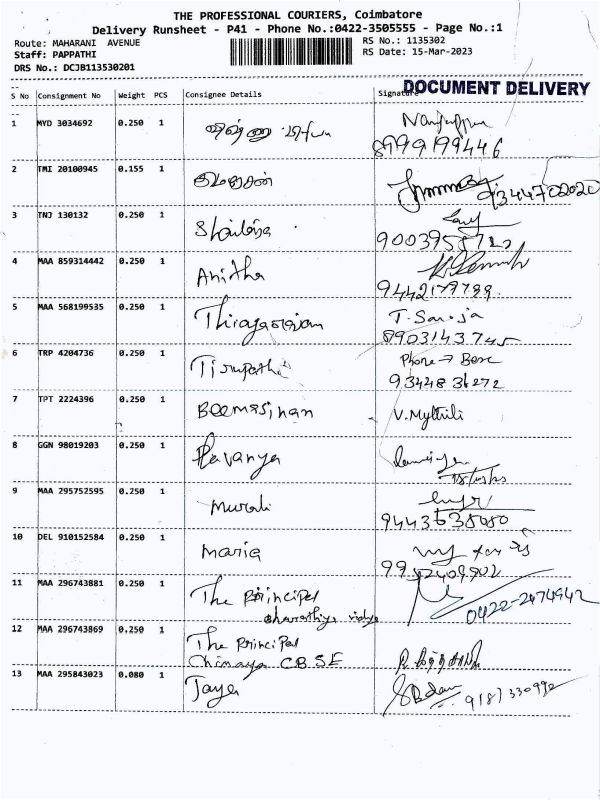 THE PROFESSIONAL COURIERS, Coimbatore
Delivery Runsheet - P41 - Phone No.:0422-3505555 - Page No.:1
Route: MAHARANI AVENUE
RS No.: 1135302
Staff: PAPPATHI
RS Date: 15-Mar-2023
DRS No.: DCJB113530201
DOCUMENT DELIVERY
S No Consignment No Weight PCS Consignee Details Signature
1 MYD 3034692 0.250 1
8999199446
2 TMI 20100945 0.155 1 குமரேசன்
9344702020
3 TNJ 130132 0.250 1 Shailaja
4 MAA 859314442 0.250 1 Anitha
9442179799
5 MAA 568199535 0.250 1 Thiyagarajan T. Saroja
8903143745
6 TRP 4204736 0.250 1 Tirupathi Phone → Bose
9344836272
7 TPT 2224396 0.250 1 Beemasinan V. Mythili
8 GGN 98019203 0.250 1 Pavanya
9 MAA 295752595 0.250 1 Murali
9443638080
10 DEL 910152584 0.250 1 Maria
9952409802
11 MAA 296743881 0.250 1 The Principal
bharathiya vidya 0422-2474942
12 MAA 296743869 0.250 1 The Principal
Chinmaya C.B.S.E
13 MAA 295843023 0.080 1 Jaya